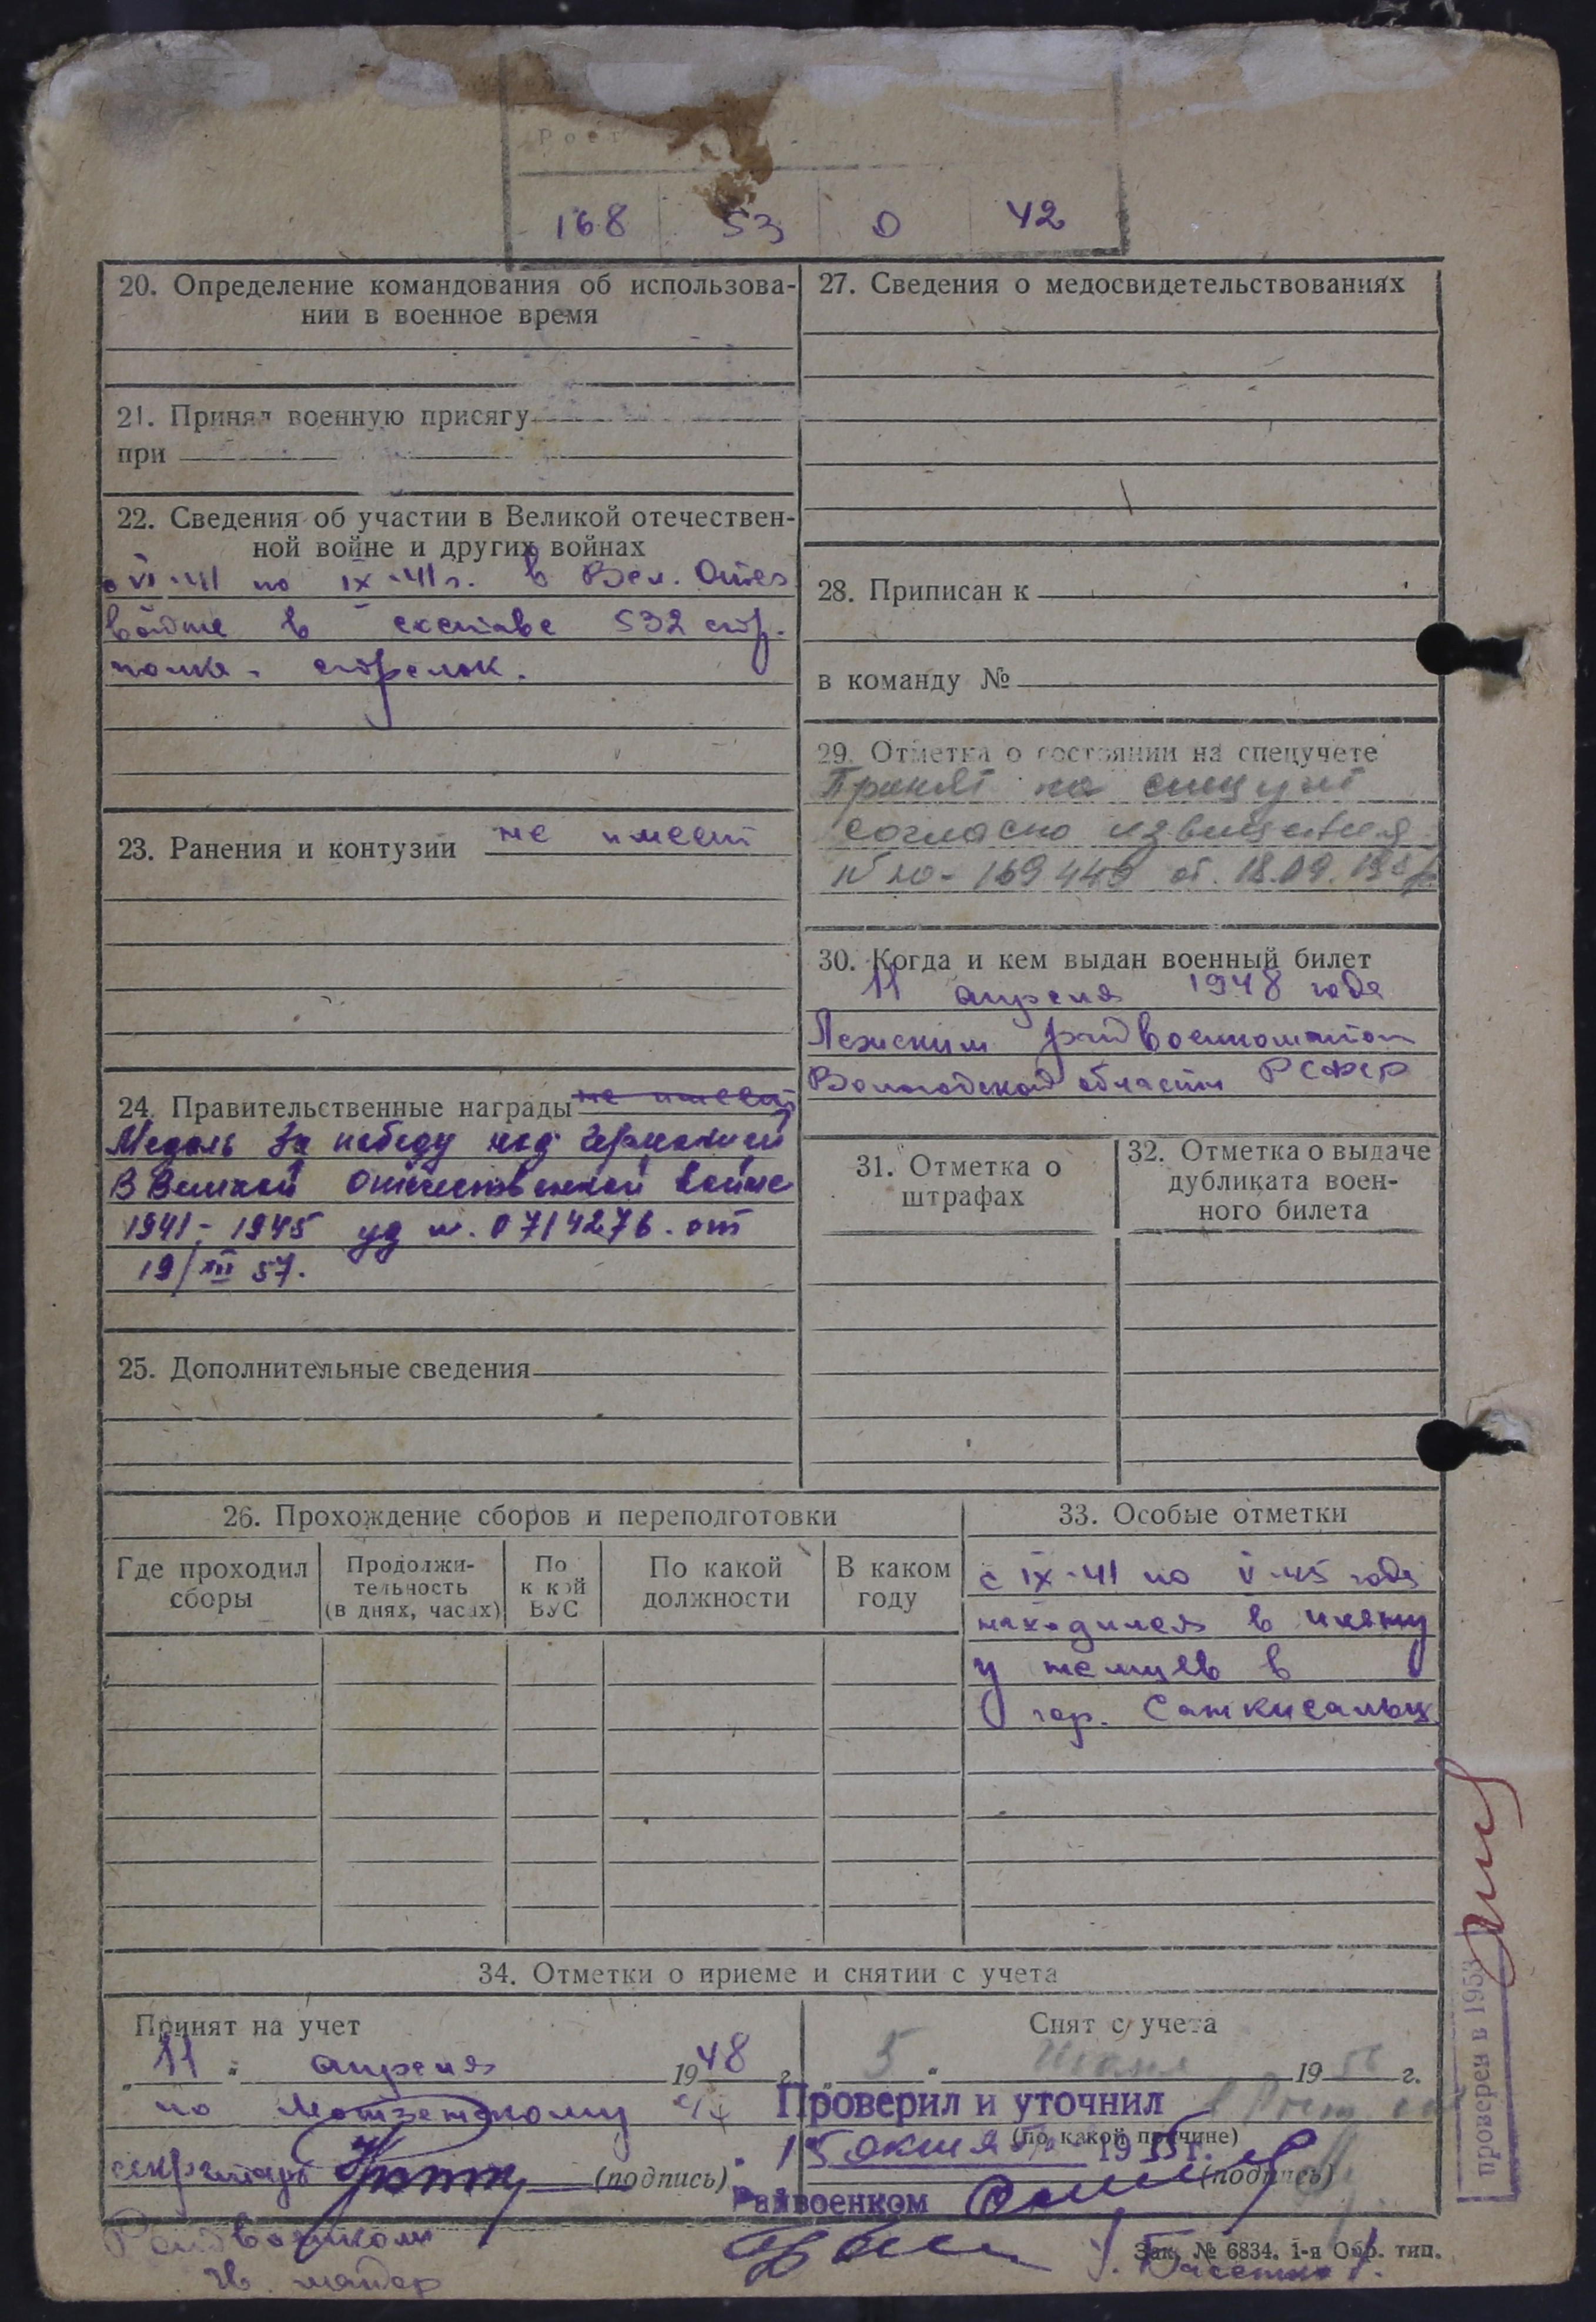 Рост
168 53 0 42
20. Определение командования об использова-
нии в военное время
21. Принял военную присягу
при
22. Сведения об участии в Великой отечествен-
ной войне и других войнах
с VI-41 по IX-41 г. в Вел. Отеч
войне в составе 532 стр.
полка - стрелок.
23. Ранения и контузии не имеет
24. Правительственные награды не имеет
Медаль За победу над Германией
В Великой Отечественной войне
1941-1945 уд н. 0714276. от
19/XII 57.
25. Дополнительные сведения
27. Сведения о медосвидетельствованиях
28. Приписан к
в команду №
29. Отметка о состоянии на спецучете
Принят на спец учет
согласно извещения
169449 от. 18.09.
30. Когда и кем выдан военный билет
11 апреля 1948 года
райвоенкоматом
Вологодской области РСФСР
31. Отметка о
штрафах
32. Отметка о выдаче
дубликата воен-
ного билета
26. Прохождение сборов и переподготовки
Где проходил
сборы
Продолжи-
тельность
(в днях, часах)
По
какой
ВУС
По какой
должности
В каком
году
33. Особые отметки
с IX-41 по V-45 года
находился в плену
у немцев в
гор.
34. Отметки о приеме и снятии с учета
Принят на учет
"11" апреля 1948 г.
по
секретарь (подпись)
Райвоенком
майор
Снят с учета
"5" Июня 1956 г.
(по какой причине)
(подпись)
Проверил и уточнил
15 октя 1955 г.
Райвоенком
Зак. № 6834. 1-я Обр. тип.
проверен в 1953